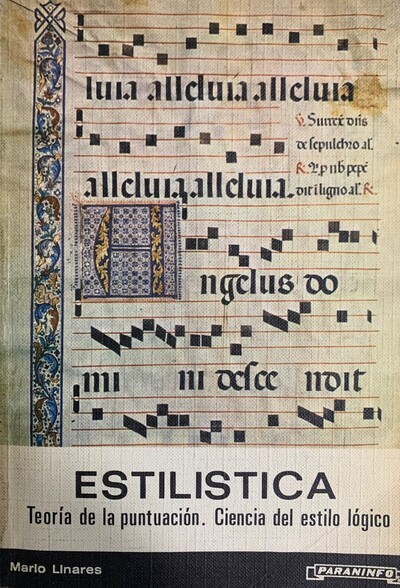 luia alleluia alleluia
℣. Surrexit dñs
de sepulchro al.
alleluia alleluia.
ngelus do
mi ni desce ndit
ESTILISTICA
Teoría de la puntuación. Ciencia del estilo lógico
Mario Linares
PARANINFO